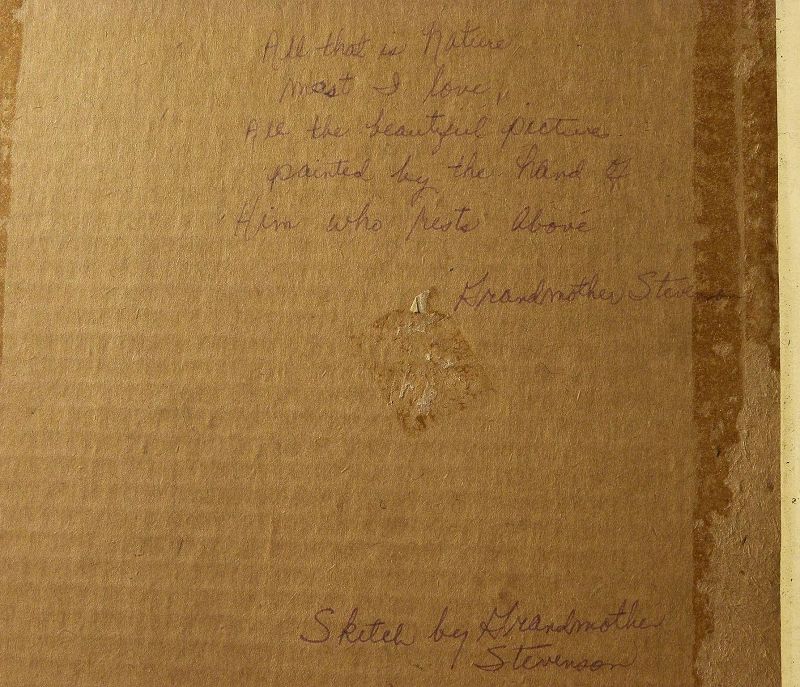 All that is Nature
most I love,,
All the beautiful picture
painted by the hand of
Him who rests above
Grandmother Stevenson
Sketch by Grandmother
Stevenson